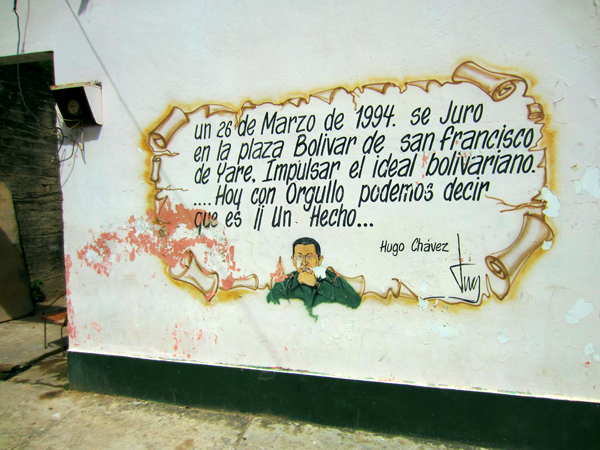 un 26 de Marzo de 1994. se Juro
en la plaza Bolivar de san francisco
de Yare, Impulsar el ideal bolivariano.
....Hoy con Orgullo podemos decir
que es ¡¡ Un Hecho...
Hugo Chávez